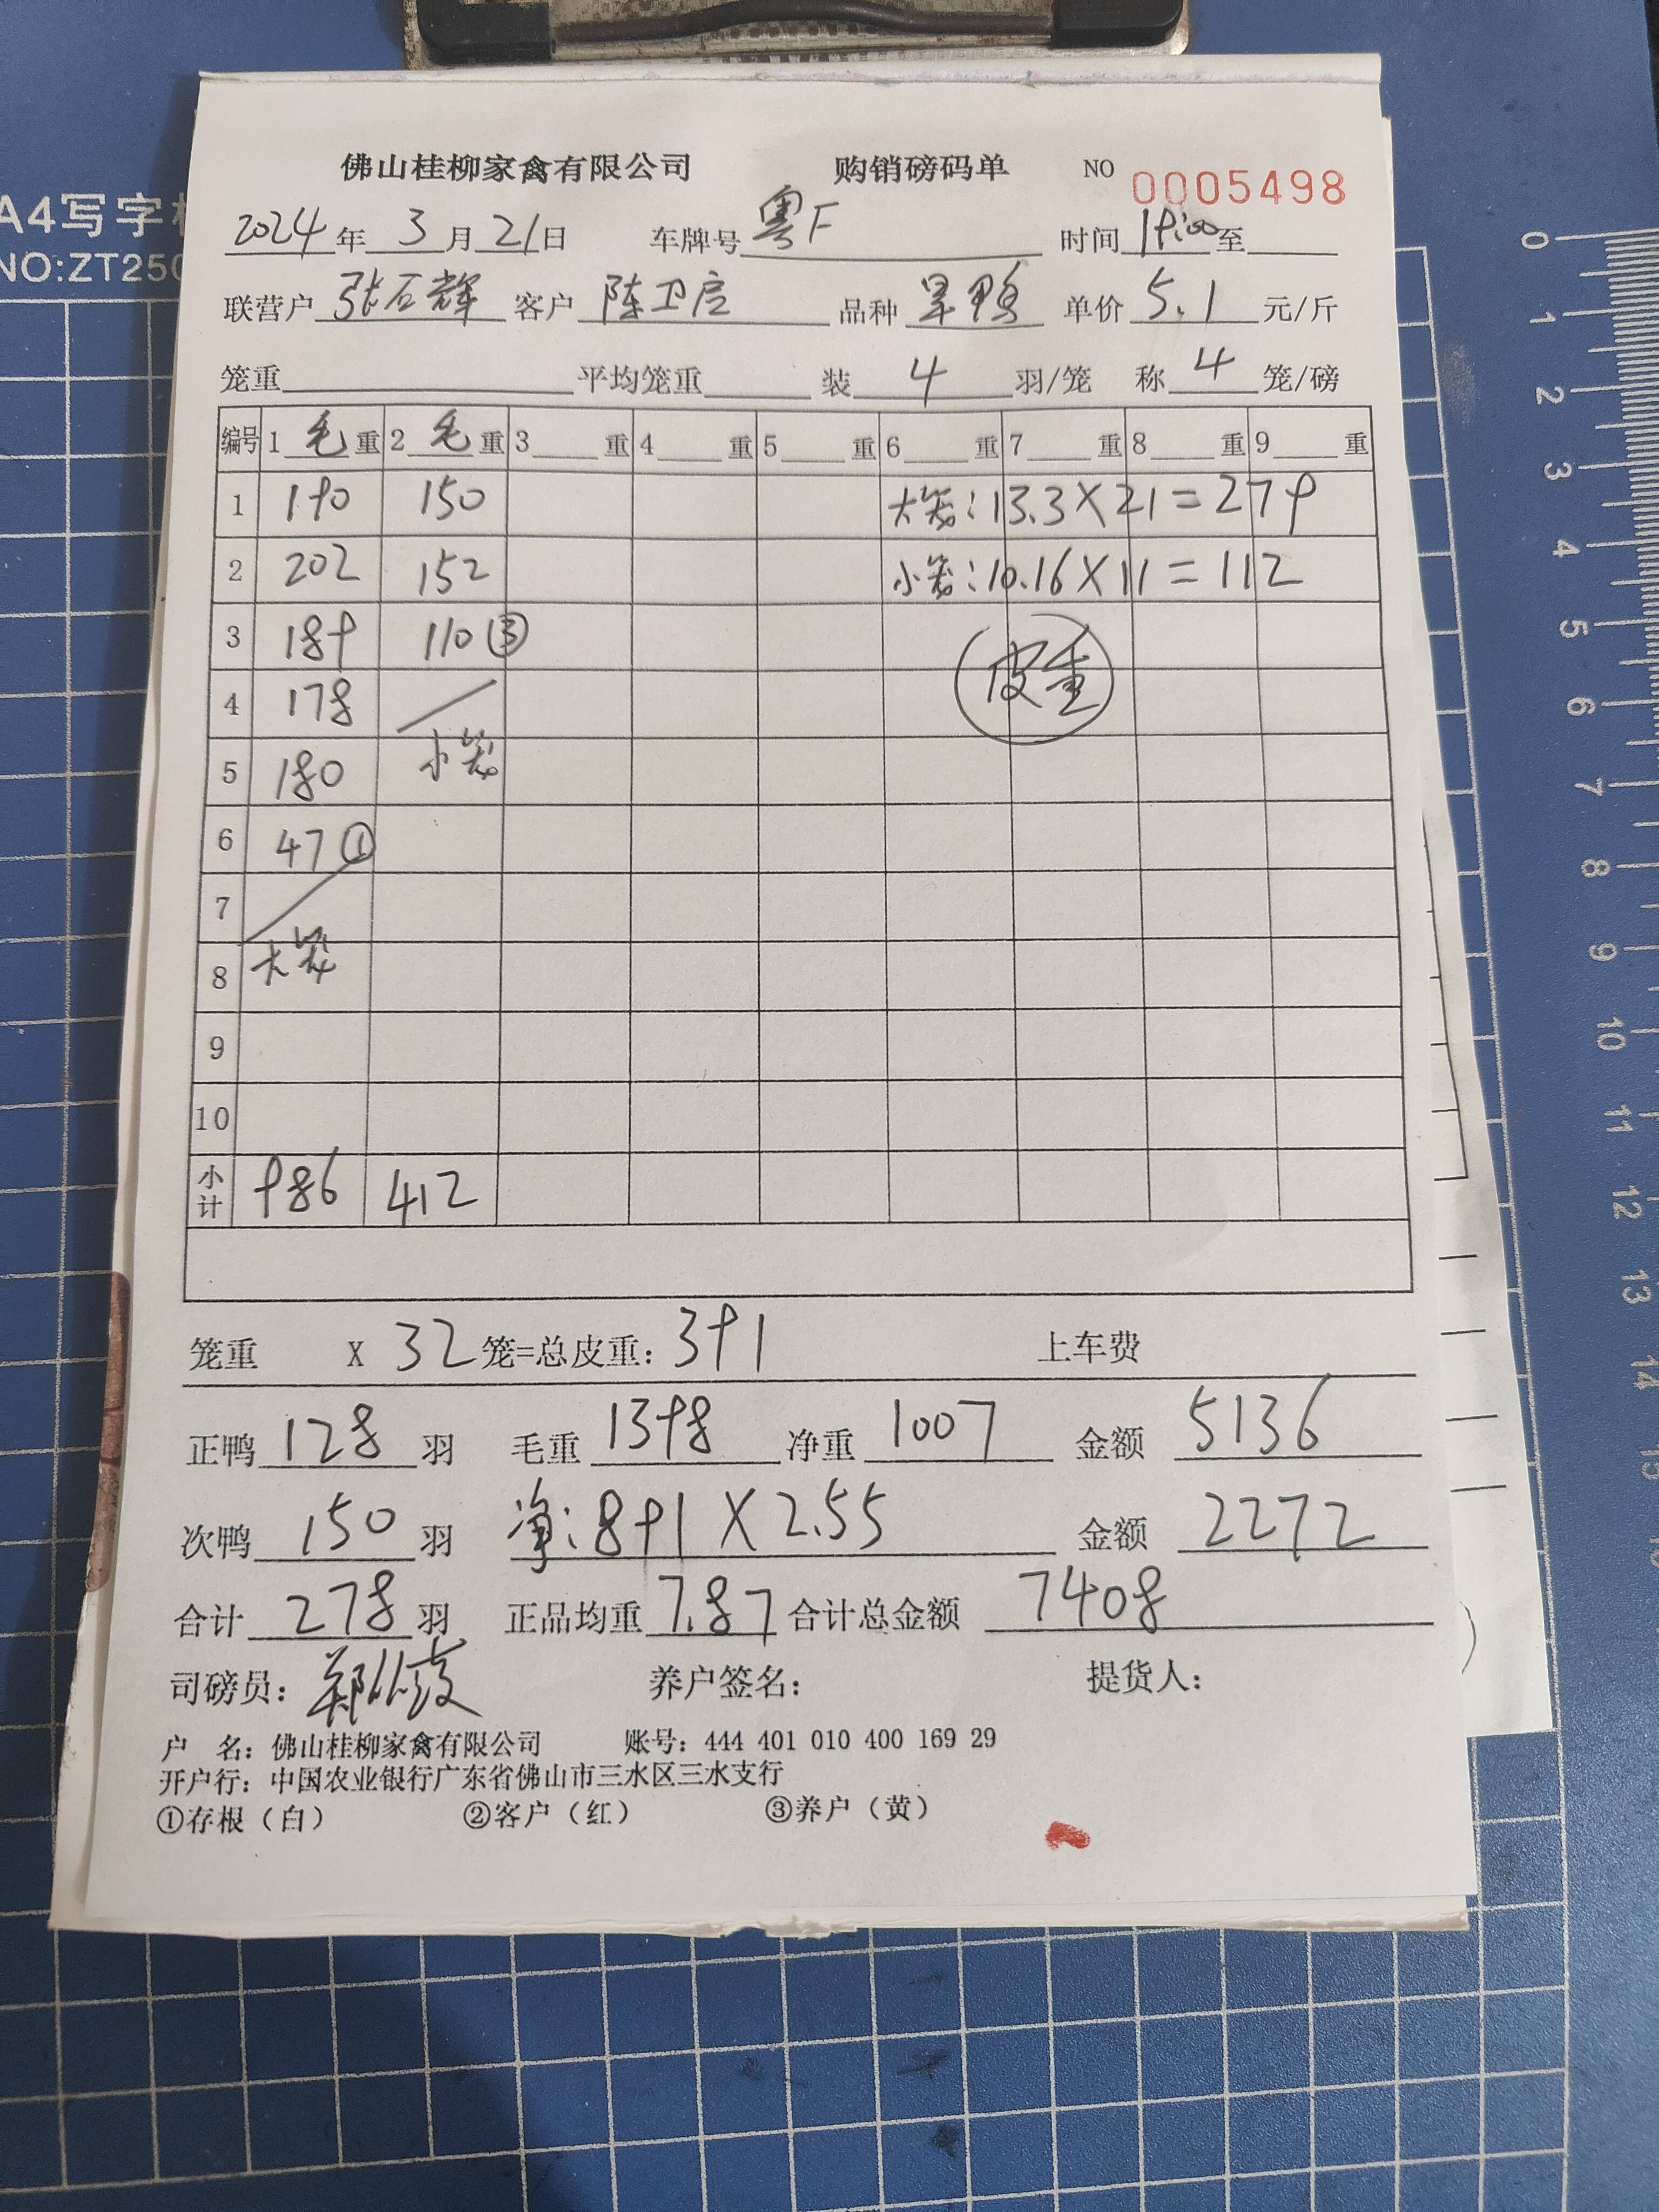 A4写字
NO:ZT250
佛山桂柳家禽有限公司 购销磅码单 NO 0005498
2024年3月21日 车牌号 粤F 时间 19:00至
联营户 张石辉 客户 陈卫 品种 旱鸭 单价 5.1 元/斤
笼重 平均笼重 装 4 羽/笼 称 4 笼/磅
编号 1 毛 重 2 毛 重 3 重 4 重 5 重 6 重 7 重 8 重 9 重
1 190 150 大笼:13.3×21=279
2 202 152 小笼:10.16×11=112
3 189 110③ 皮重
4 178
5 180 小笼
6 47①
7
8 大笼
9
10
小计 986 412
笼重 X 32 笼=总皮重: 391 上车费
正鸭 128 羽 毛重 1398 净重 1007 金额 5136
次鸭 150 羽 净:891×2.55 金额 2272
合计 278 羽 正品均重 7.87 合计总金额 7408
司磅员: 郑 养户签名: 提货人:
户 名: 佛山桂柳家禽有限公司 账号: 444 401 010 400 169 29
开户行: 中国农业银行广东省佛山市三水区三水支行
①存根(白) ②客户(红) ③养户(黄)
0
1
2
3
4
5
6
7
8
9
10
11
12
13
14
15